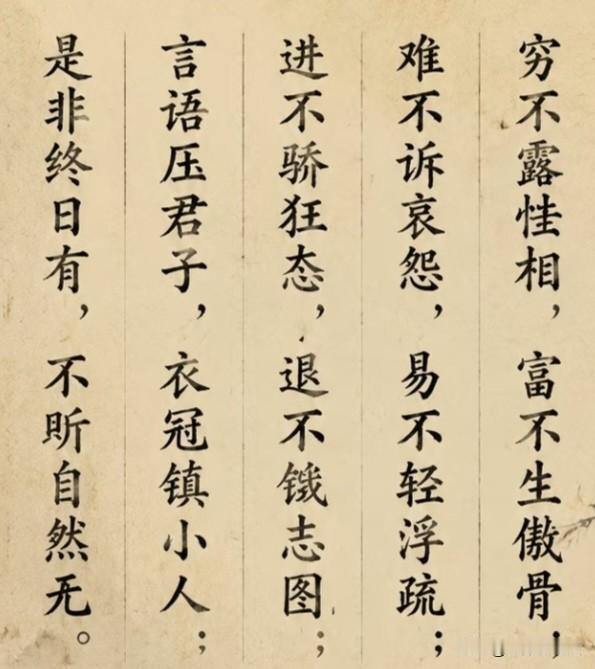 穷不露性相，富不生傲骨，
难不诉哀怨，易不轻浮疏；
进不骄狂态，退不饿志图；
言语压君子，衣冠镇小人；
是非终日有，不昕自然无。